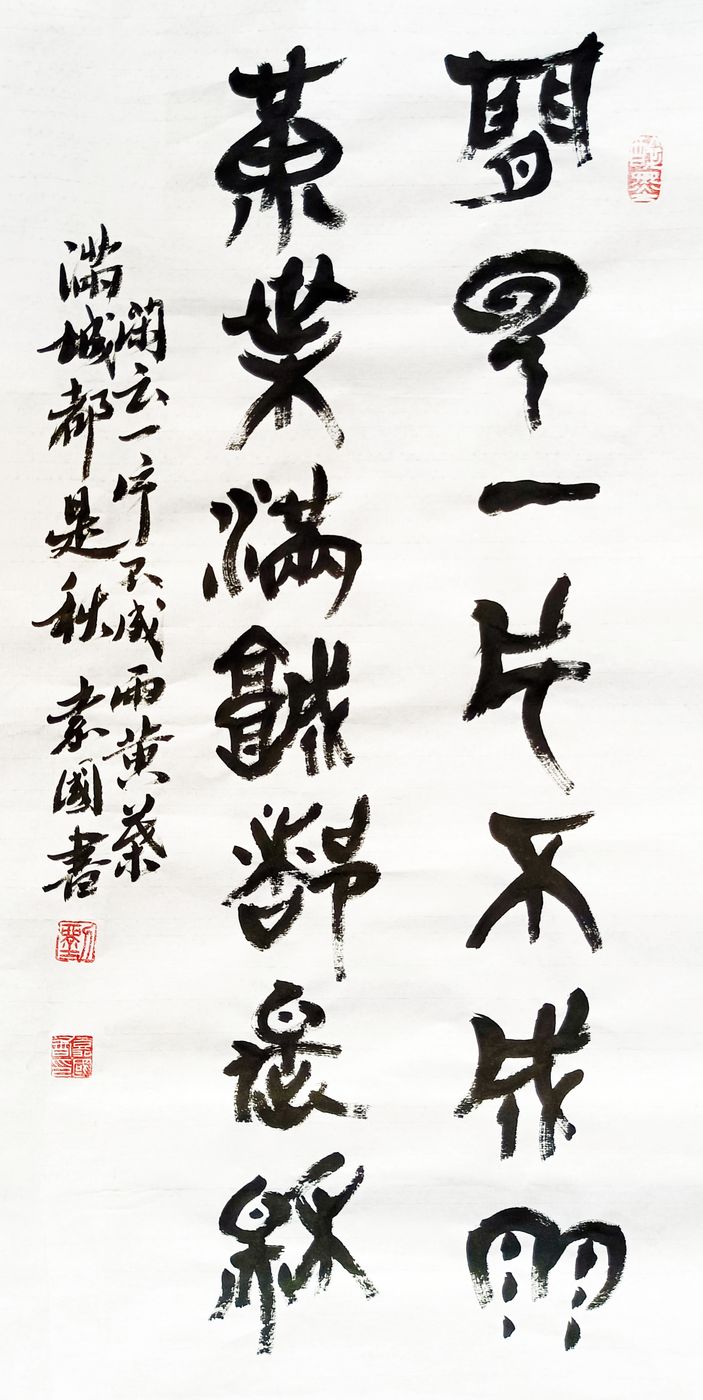 閒云一片不成雨
黄葉滿城都是秋
閒云一片不成雨黄葉
滿城都是秋 國書